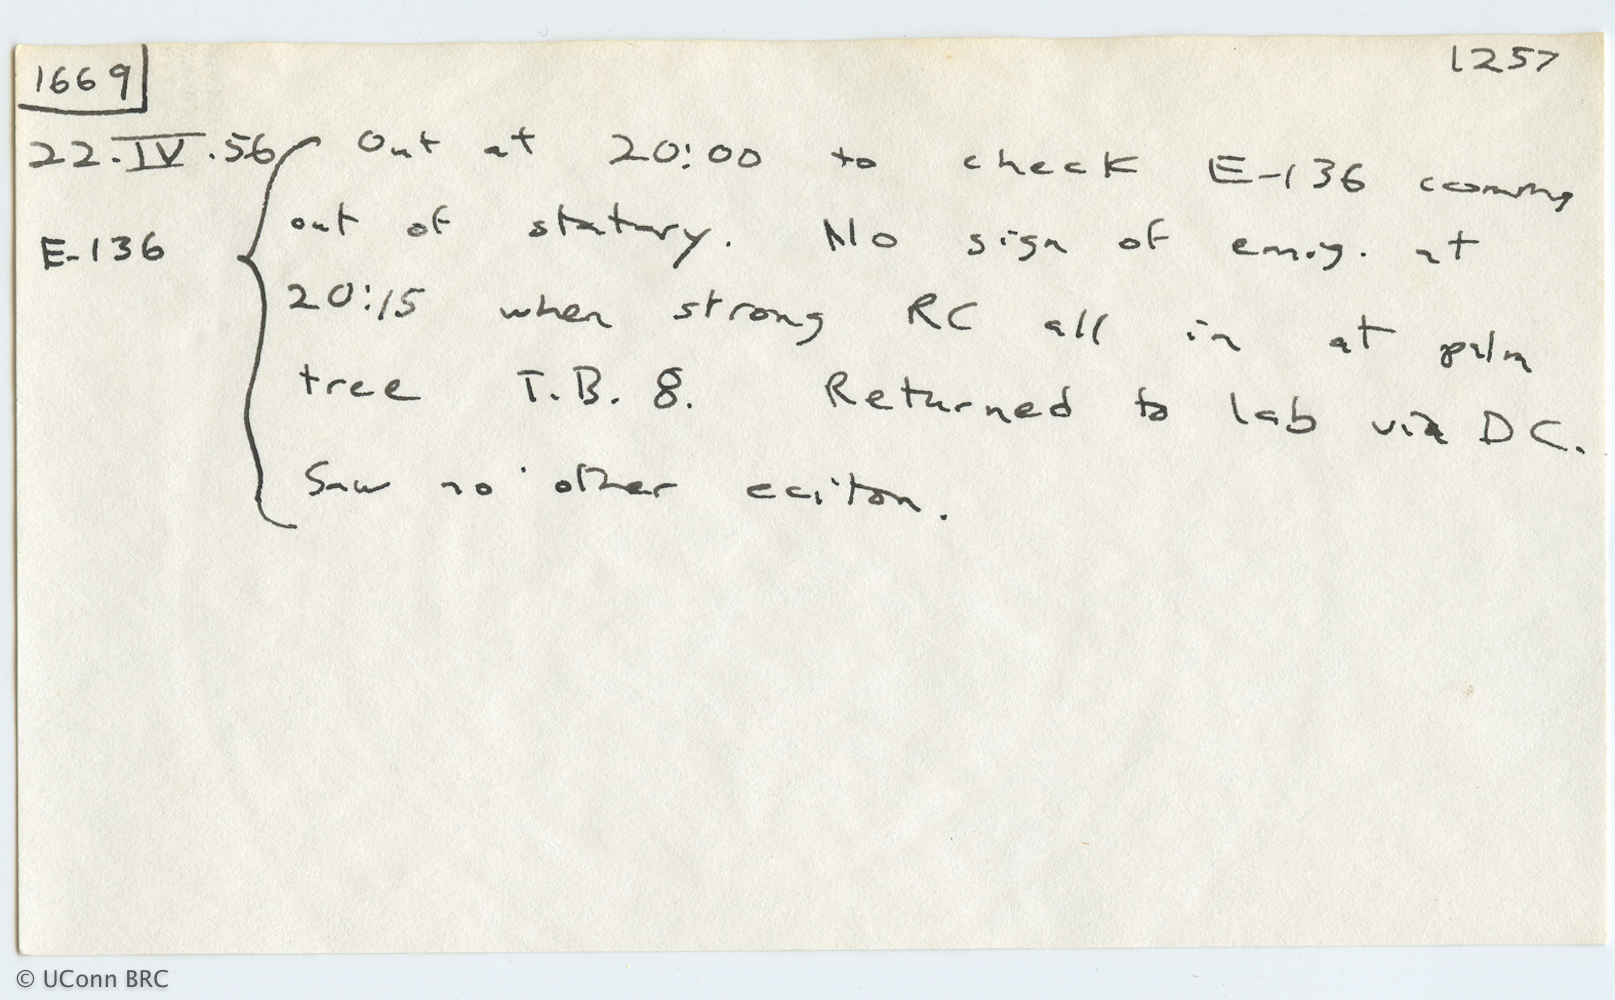 1669
1257
22.IV.56 Out at 20:00 to check E-136 coming
out of statary. No sign of emig. at
E-136
20:15 when strong RC all in at palm
tree T.B. 8. Returned to lab via DC.
Saw no other eciton.
© UConn BRC